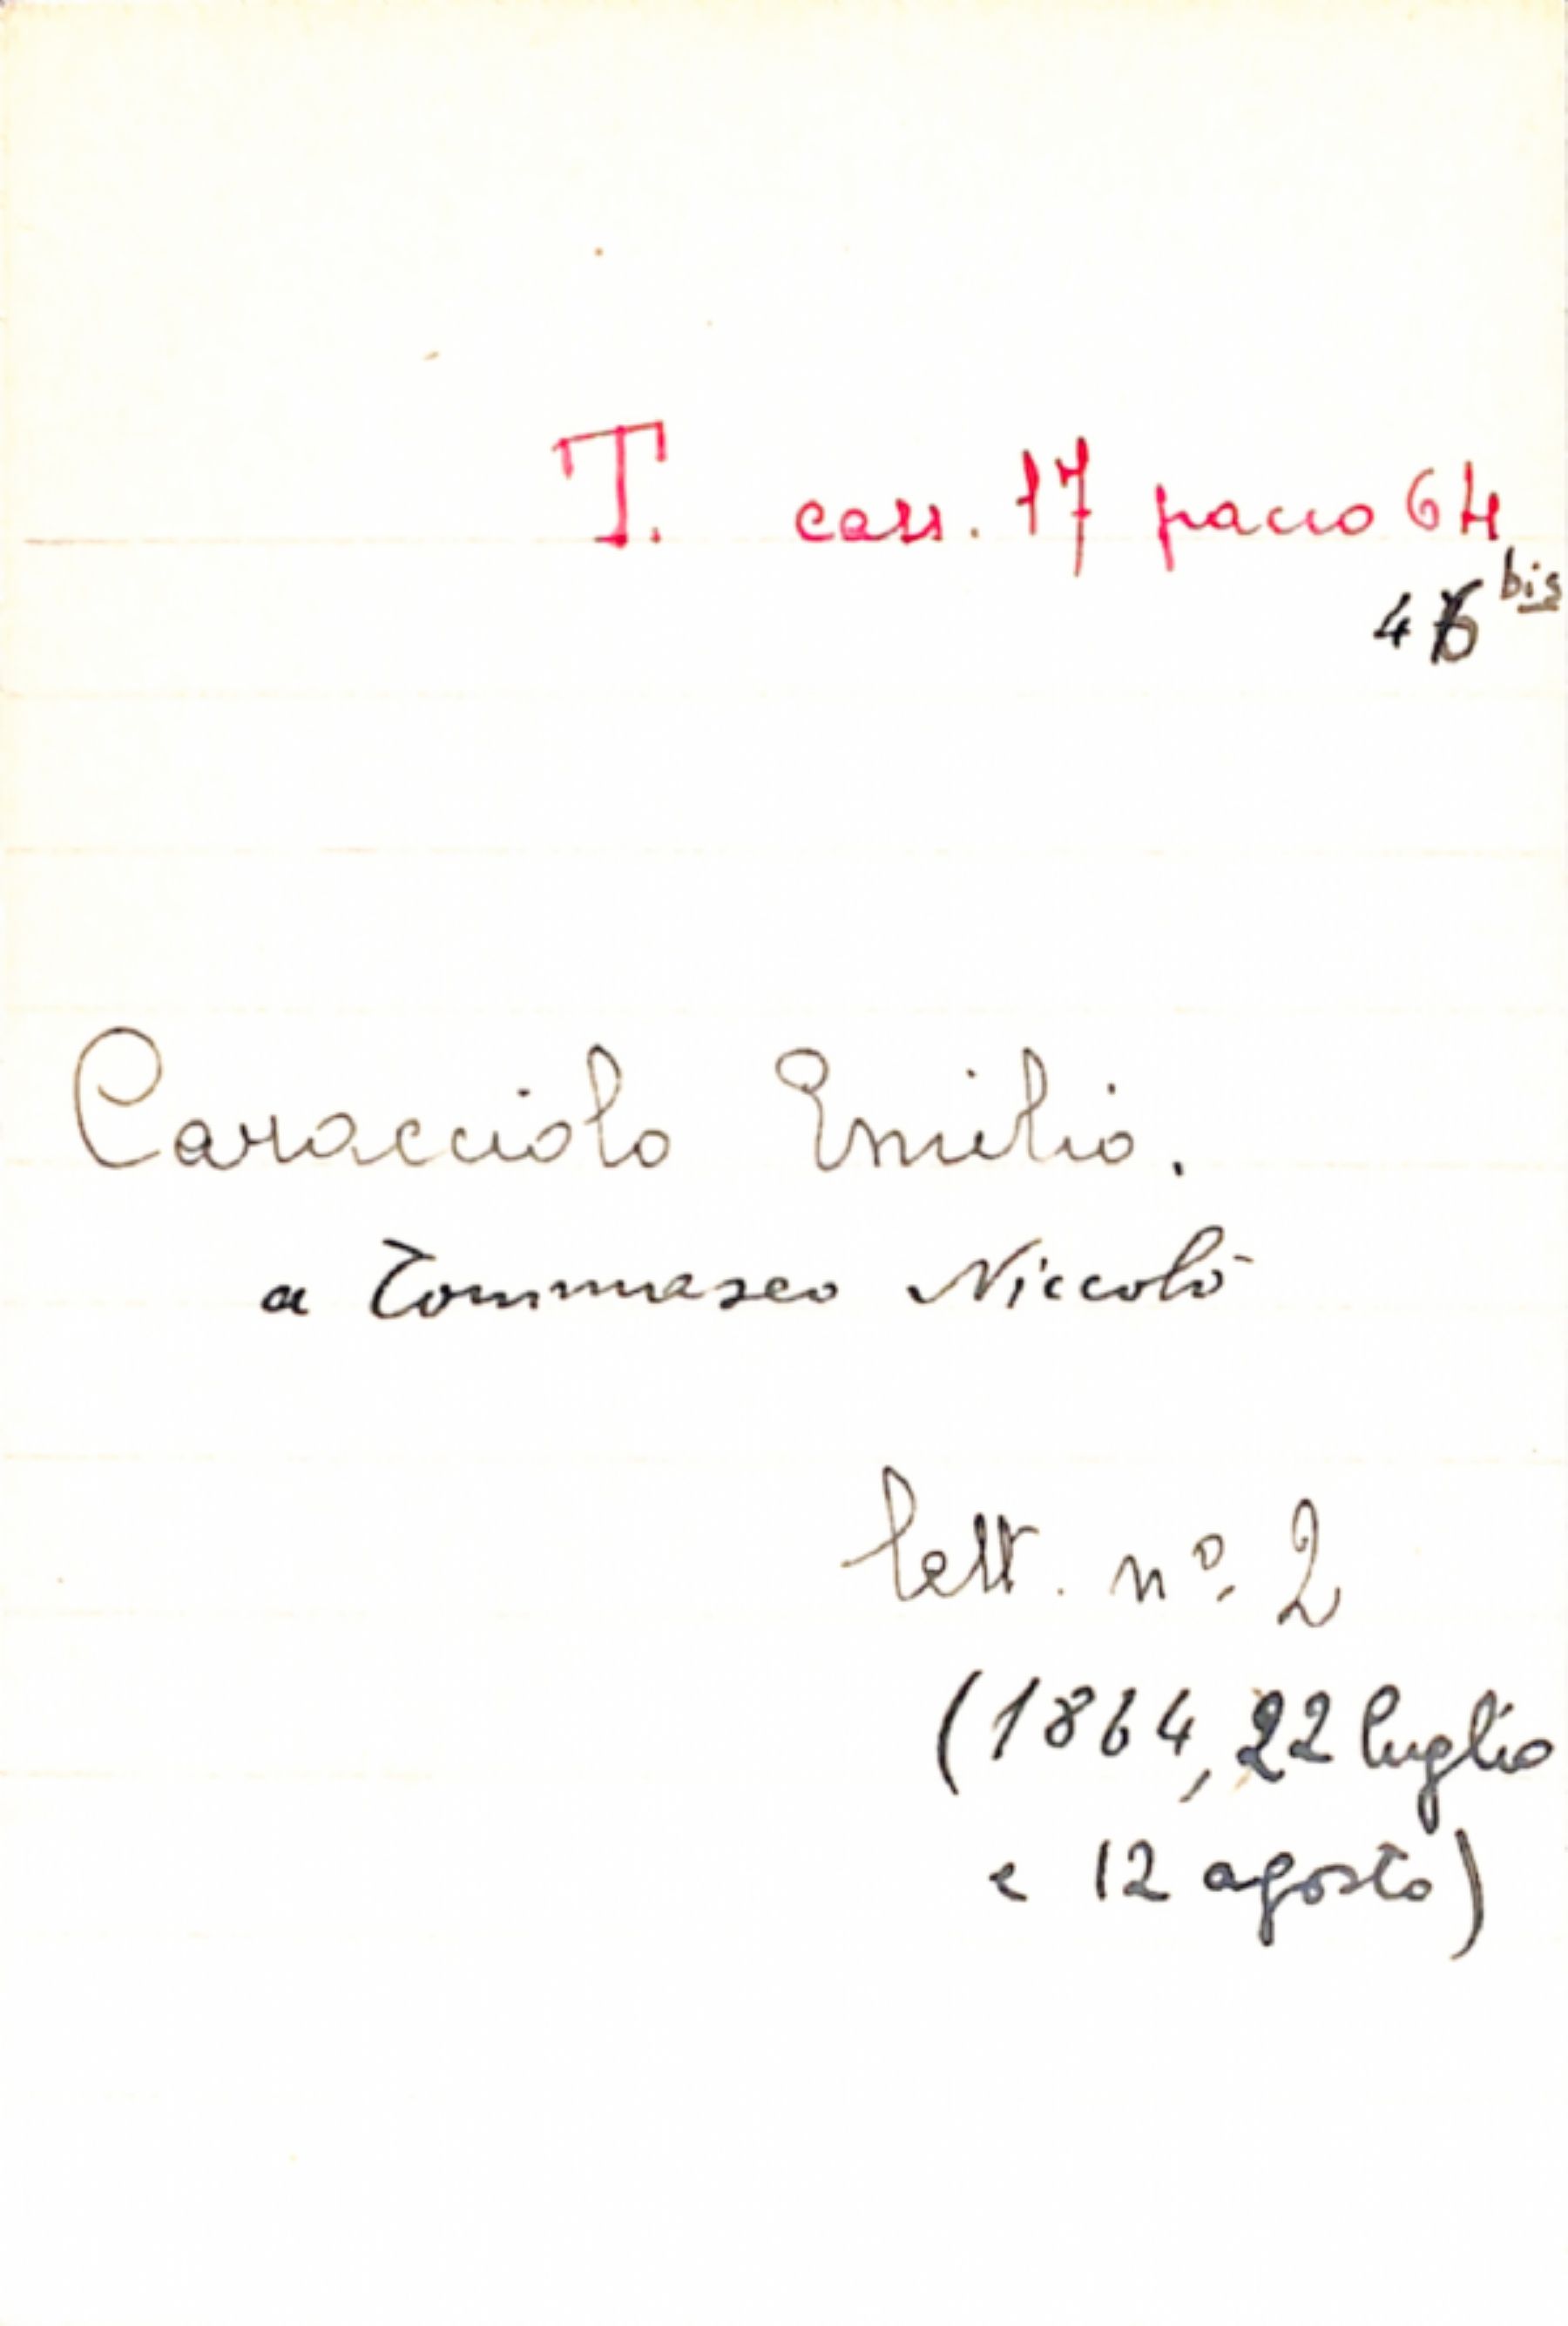 T. cass. 17 pacco 64
46 bis
Caracciolo Emilio.
a Tommaseo Niccolò
lett. nº. 2
(1864, 22 luglio
e 12 agosto)